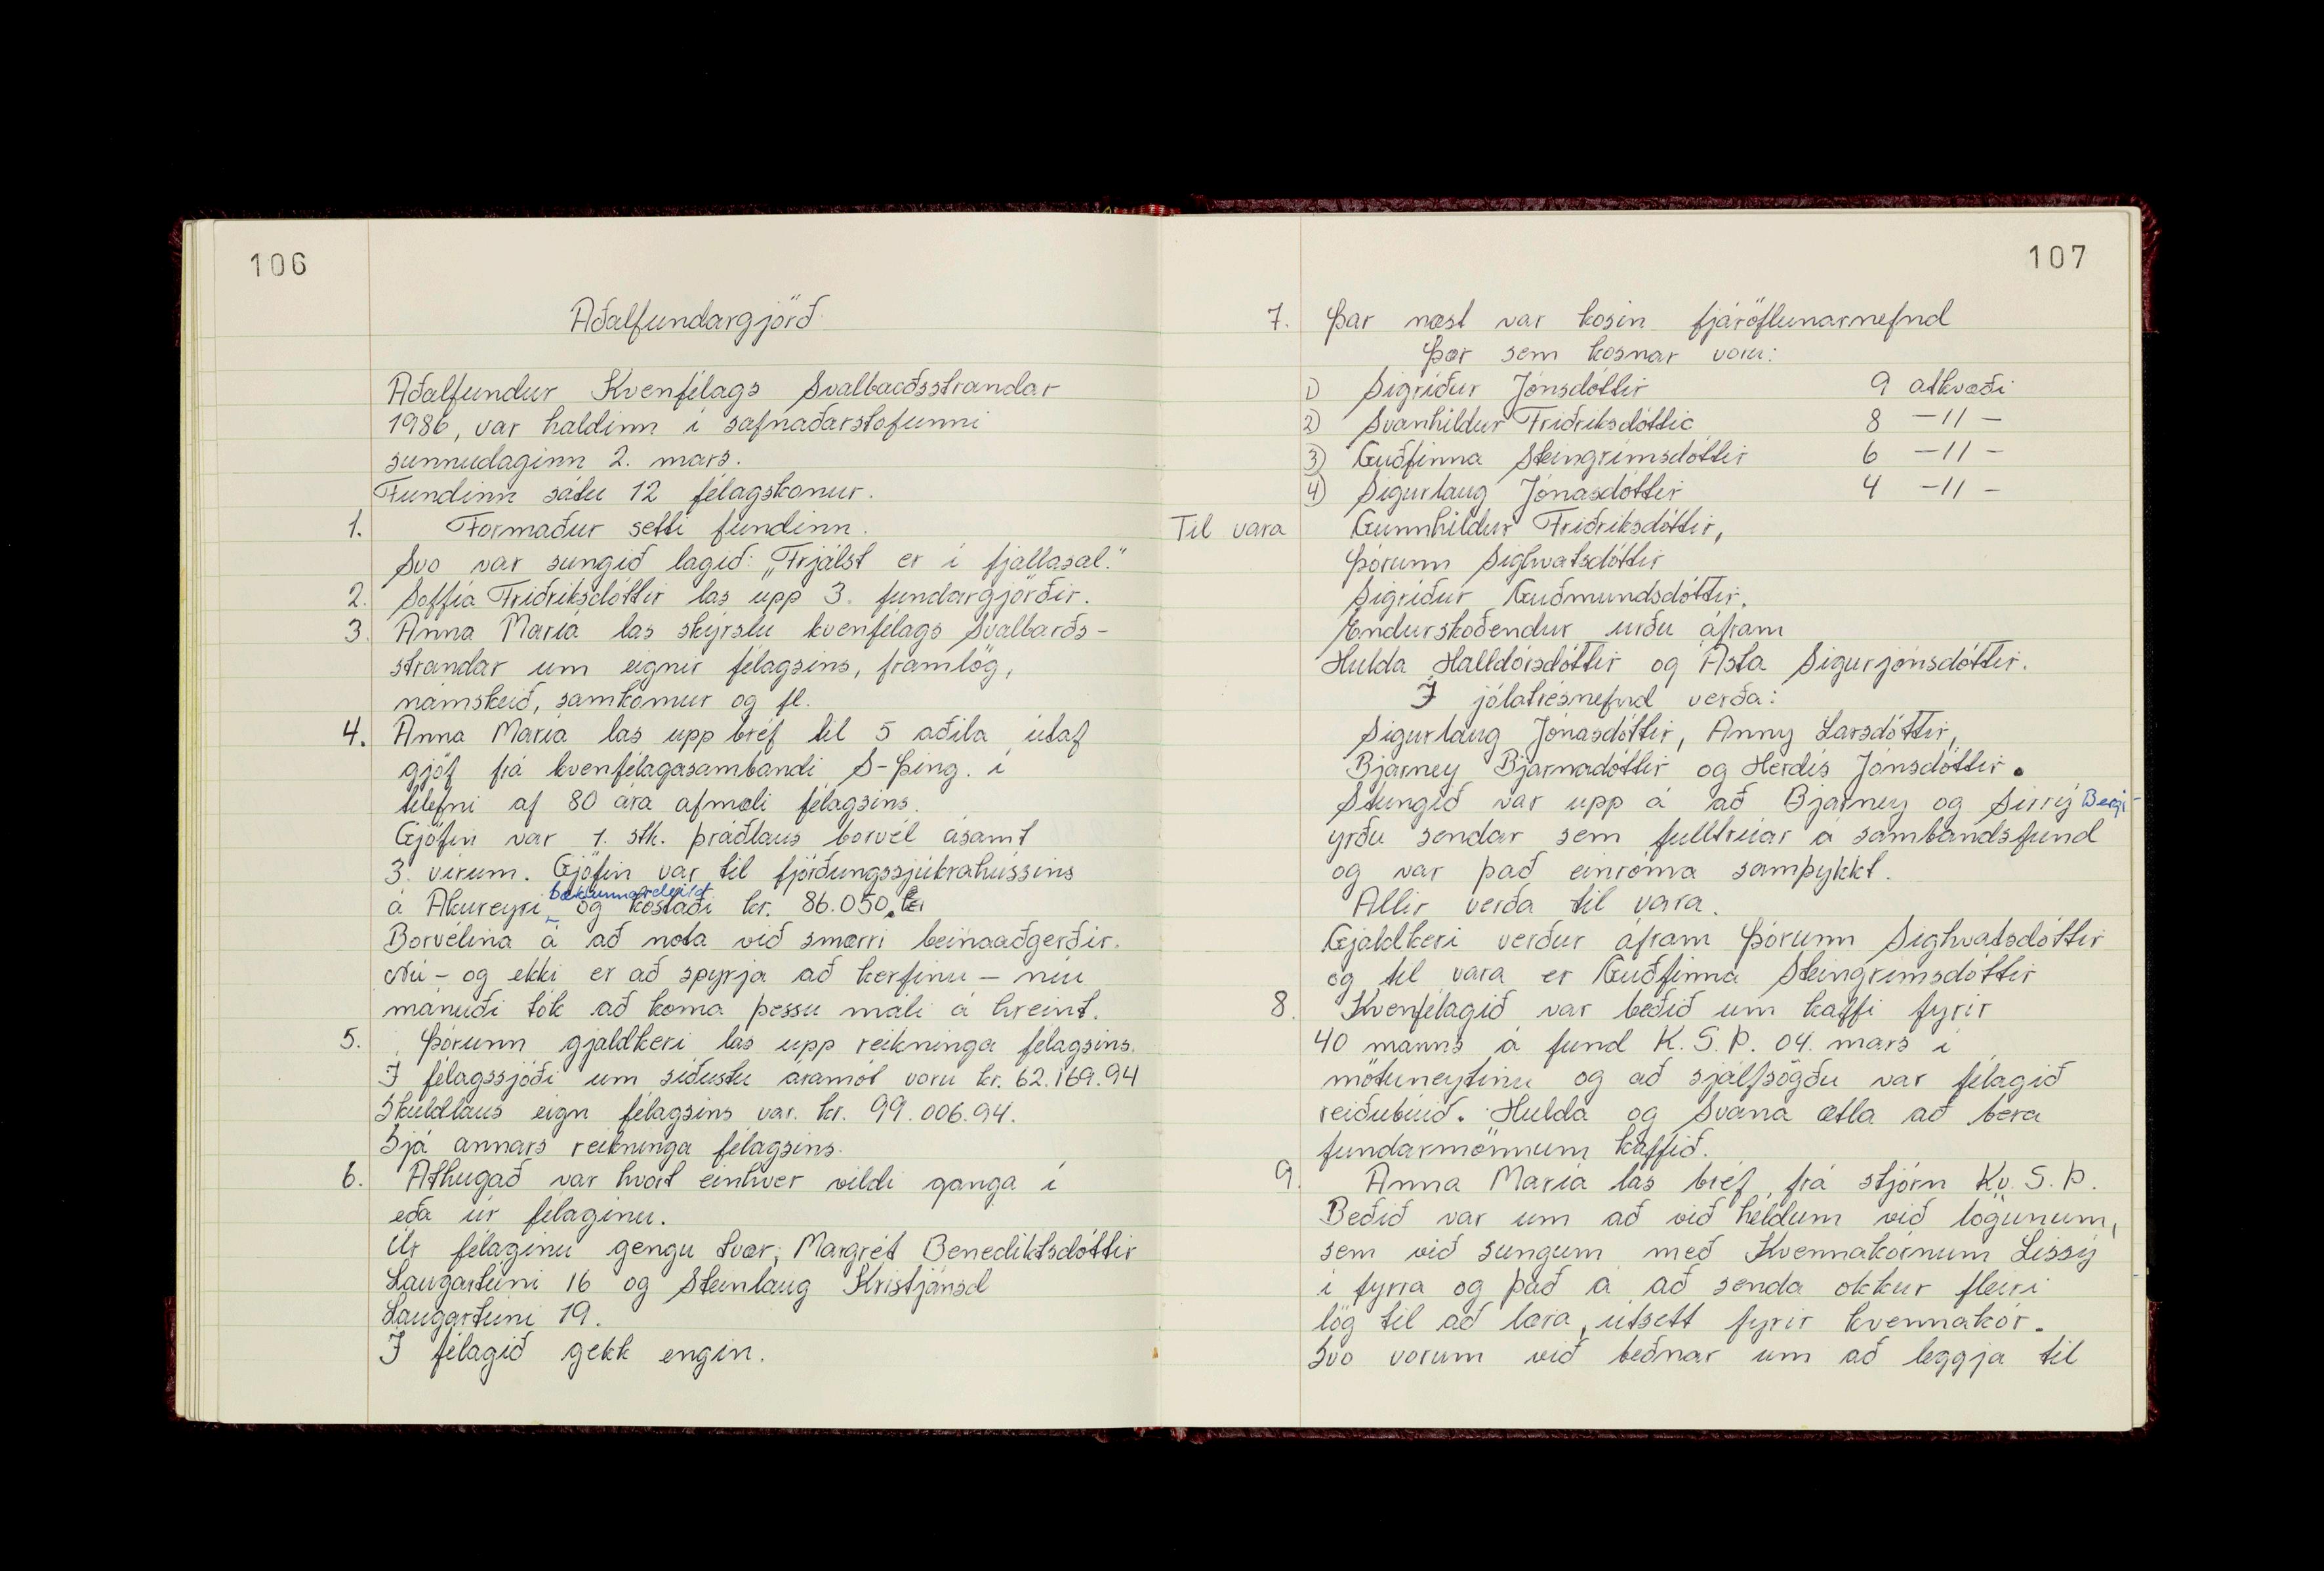 106
Aðalfundargjörð
Aðalfundur Kvenfélags Svalbarðsstrandar
1986, var haldinn í safnaðarstofunni
sunnudaginn 2. mars.
Fundinn sátu 12 félagskonur.
1. Formaður setti fundinn.
Svo var sungið lagið: „Frjálst er í fjallasal."
2. Soffía Friðriksdóttir las upp 3. fundargjörðir.
3. Anna María las skýrslu kvenfélags Svalbarðs-
strandar um eignir félagsins, framlög,
námskeið, samkomur og fl.
4. Anna María las upp bréf til 5 aðila útaf
gjöf frá kvenfélagasambandi S-Þing. í
tilefni af 80 ára afmæli félagsins.
Gjöfin var 1. stk. þráðlaus borvél ásamt
3. vírum. Gjöfin var til fjórðungssjúkrahússins
á Akureyri bæklunardeild og kostaði kr. 86.050.
Borvélina á að nota við smærri beinaaðgerðir.
Nú - og ekki er að spyrja að kerfinu - níu
mánuði tók að koma þessu máli á hreint.
5. Þórunn gjaldkeri las upp reikninga félagsins.
Í félagssjóði um síðustu áramót voru kr. 62.169.94
Skuldlaus eign félagsins var. kr. 99.006.94.
Sjá annars reikninga félagsins.
6. Athugað var hvort einhver vildi ganga í
eða úr félaginu.
Úr félaginu gengu tvær; Margrét Benediktsdóttir
Laugartúni 16 og Steinlaug Kristjánsd
Laugartúni 19.
Í félagið gekk engin.
107
7. Þar næst var kosin fjáröflunarnefnd
Þær sem kosnar voru:
1) Sigríður Jónsdóttir 9 atkvæði
2) Svanhildur Friðriksdóttir 8 -11-
3) Guðfinna Steingrímsdóttir 6 -11-
4) Sigurlaug Jónasdóttir 4 -11-
Til vara Gunnhildur Friðriksdóttir,
Þórunn Sighvatsdóttir
Sigríður Guðmundsdóttir.
Endurskoðendur urðu áfram
Hulda Halldórsdóttir og Ásta Sigurjónsdóttir.
Í jólatrésnefnd verða:
Sigurlaug Jónasdóttir, Anny Larsdóttir,
Bjarney Bjarnadóttir og Herdís Jónsdóttir.
Stungið var upp á að Bjarney og Sirrý
yrðu sendar sem fulltrúar á sambandsfund
og var það einróma samþykkt.
Allir verða til vara.
Gjaldkeri verður áfram Þórunn Sighvatsdóttir
og til vara er Guðfinna Steingrímsdóttir
8. Kvenfélagið var beðið um kaffi fyrir
40 manns á fund K.S.Þ. 04. mars í
mötuneytinu og að sjálfsögðu var félagið
reiðubúið. Hulda og Svana ætla að bera
fundarmönnum kaffið.
9. Anna María las bréf frá stjórn Kv. S. Þ.
Beðið var um að við héldum við lögunum,
sem við sungum með Kvennakórnum Lissý
í fyrra og það á að senda okkur fleiri
lög til að læra, útsett fyrir kvennakór.
Svo vorum við beðnar um að leggja til